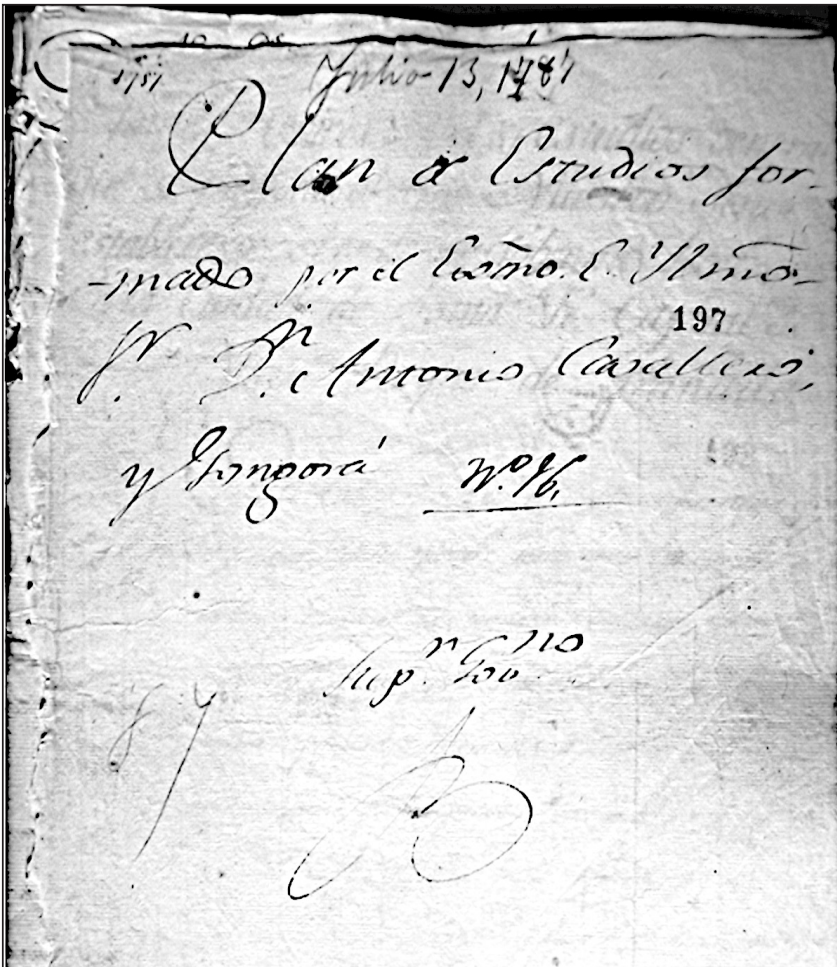 1787 Julio 13, 1787
Plan de Estudios for-
-mado por el Exc̃mo. E. Yllmõ
197
Sr. Dn. Antonio Cavallero,
y Gongorá Nº. 16,
Supr. Govno